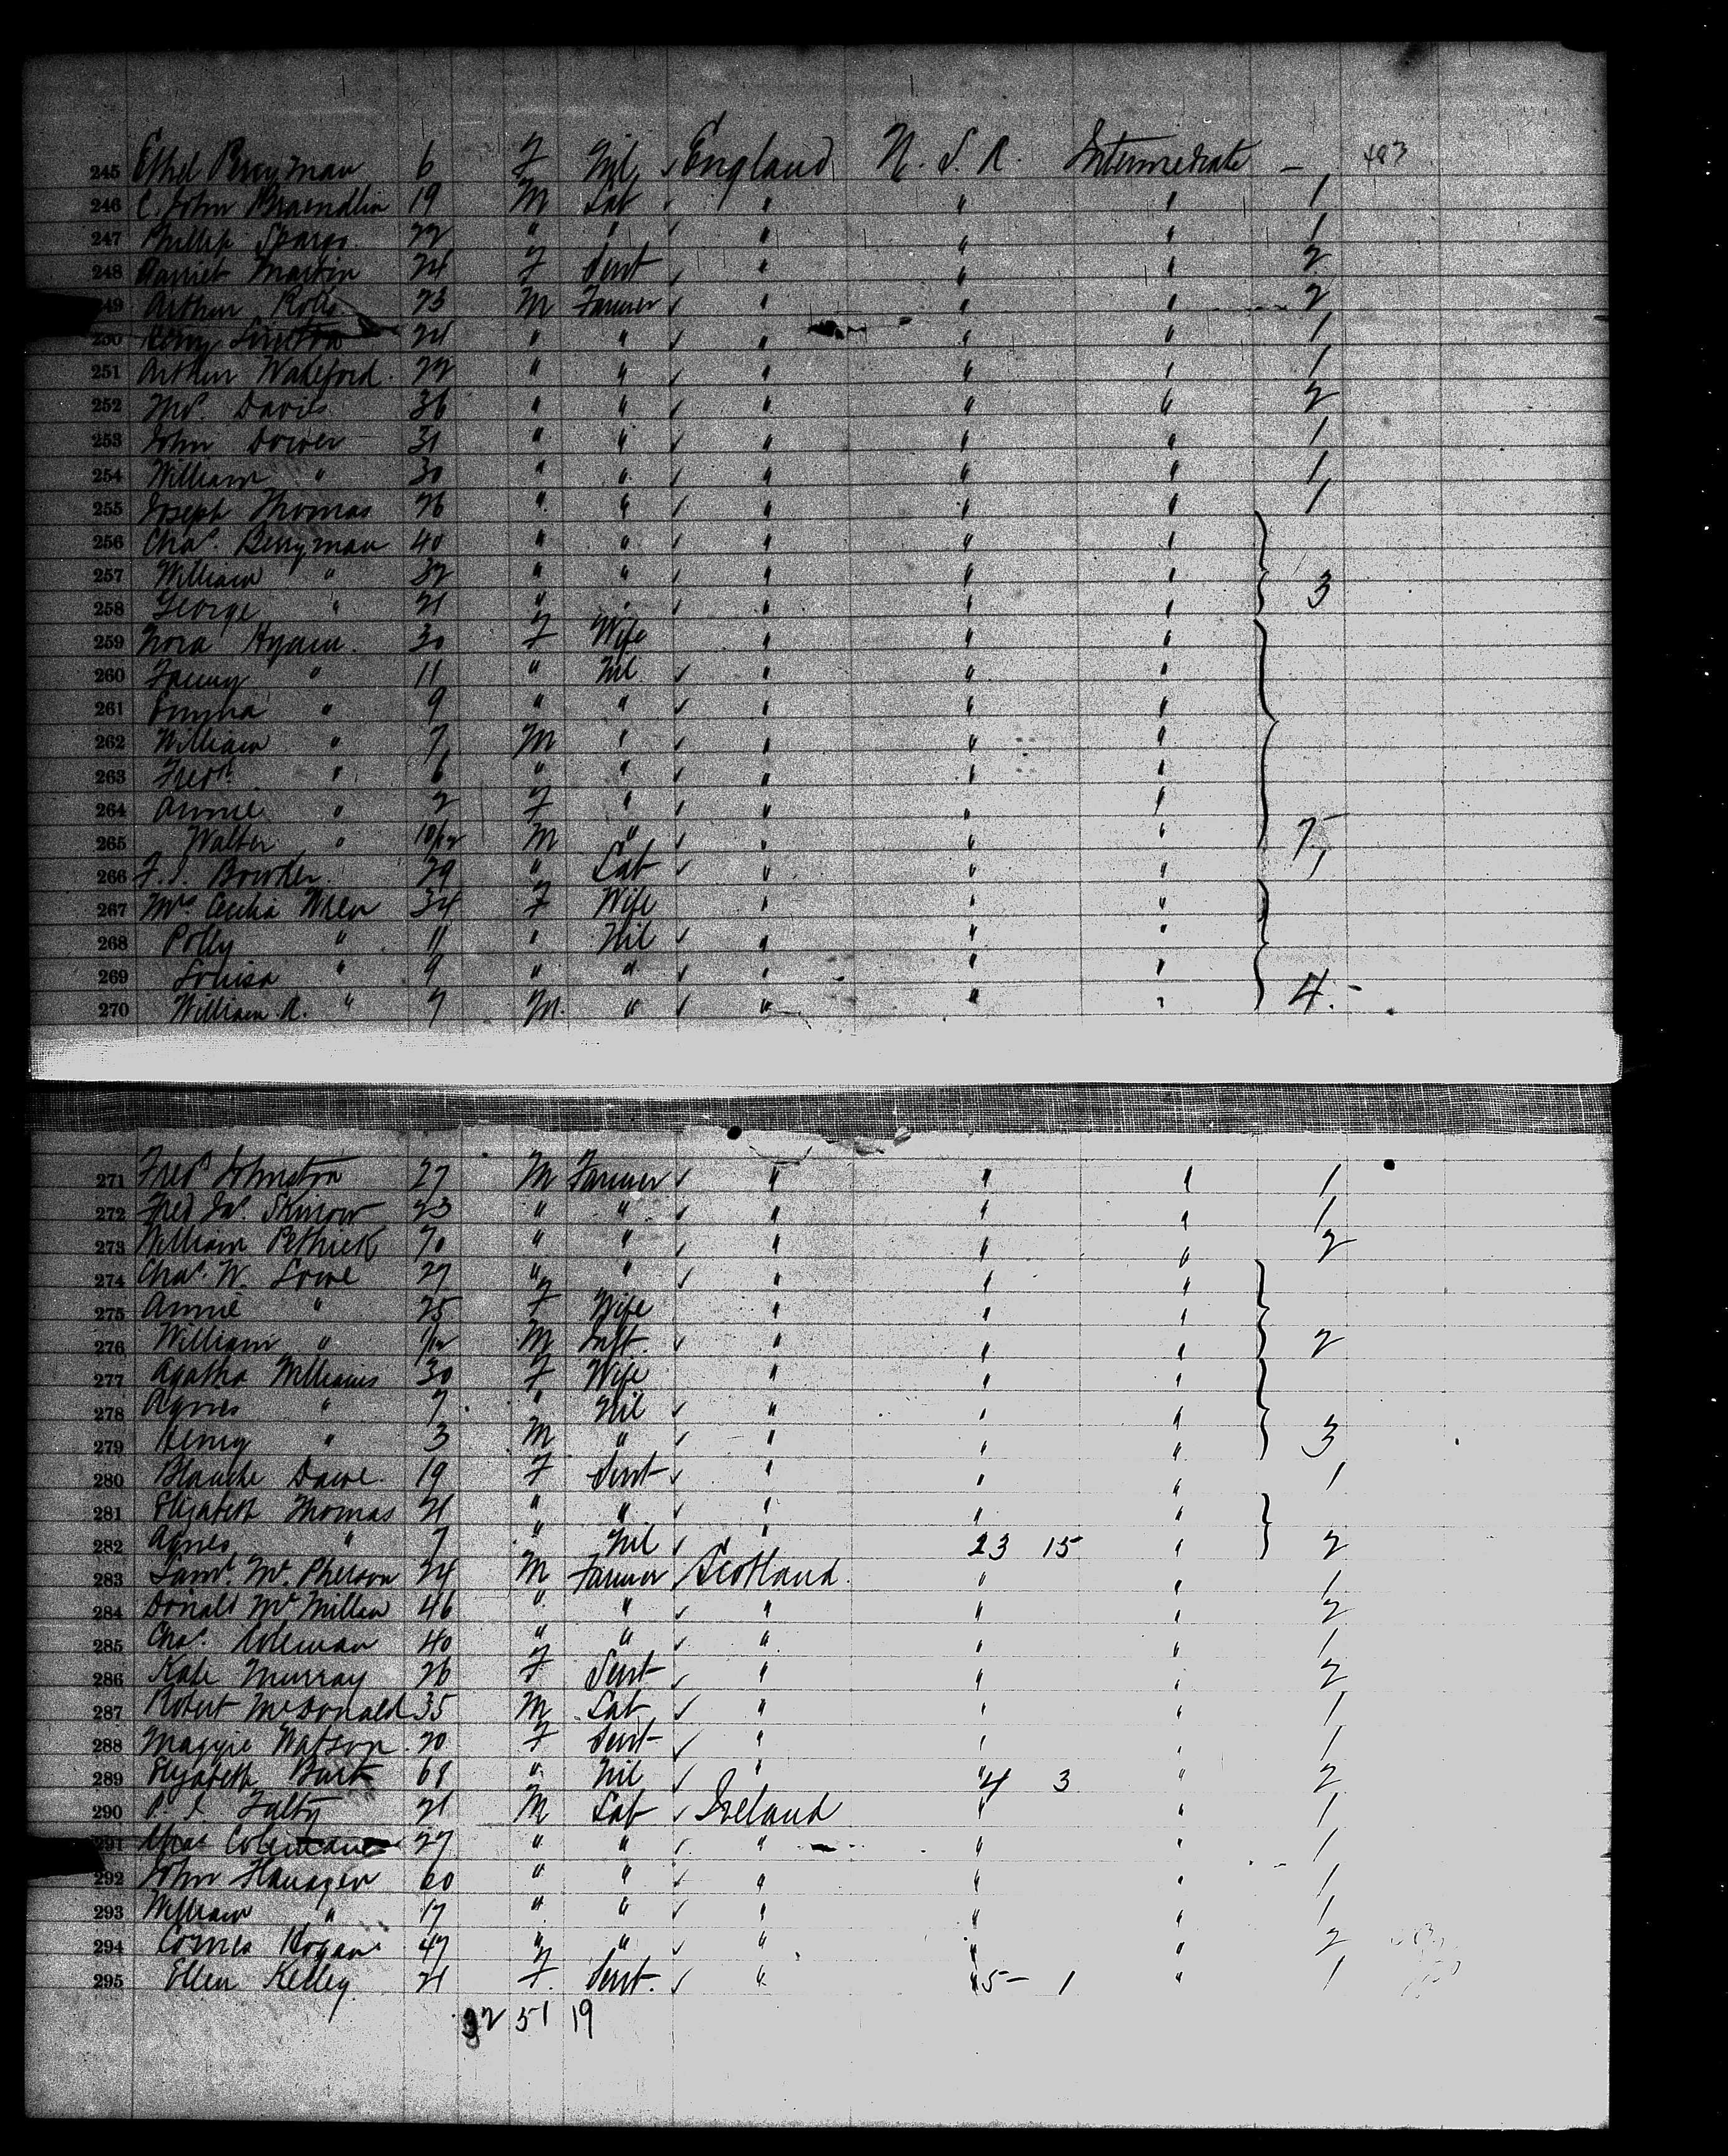 245 Ethel Berryman 6 F Nil ✓ England N. S. R. Intermediate -
246 C. John Braendlin 19 M Lab ✓ " " " 1
247 Phillip Spargo 22 " " ✓ " " " 1
248 Harriet Martin 24 F Servt ✓ " " " 2
249 Arthur 23 M Farmer ✓ " " " 2
250 Henry 24 " " ✓ " " " 1
251 Arthur Wakeford 22 " " ✓ " " " 1
252 Davies 36 " " ✓ " " " 2
253 John Dower 31 " " ✓ " " " 1
254 William " 30 " " ✓ " " " 1
255 Joseph Thomas 26 " " ✓ " " " 1
256 Chas. Berryman 40 " " ✓ " " "
257 William " 32 " " ✓ " " " 3
258 George " 21 " " ✓ " " "
259 Nora Hyam 30 F Wife " " "
260 Fanny " 11 " Nil ✓ " " "
261 Emma " 9 " " ✓ " " "
262 William " 7 M " ✓ " " "
263 Fredk " 6 " " ✓ " " "
264 Annie " 2 F " ✓ " " "
265 Walter " 10/12 M " ✓ " " " 7
266 F. J. Bowker 29 " Lab ✓ " " " 1
267 Mrs Cecilia Wren 34 F Wife " " "
268 Polly " 11 " Nil ✓ " " "
269 Louisa " 9 " " ✓ " " "
270 William R. " 7 M. " ✓ " " " 4.-
271 Fredk Johnston 27 M Farmer ✓ " " " 1
272 Fred Js. Skinrow 23 " " ✓ " " " 1
273 William Pethick 70 " " ✓ " " " 2
274 Chas. W. Lowe 27 " " ✓ " " "
275 Annie " 25 F Wife " " "
276 William " 1/12 M Inft. ✓ " " " 2
277 Agatha Williams 30 F Wife " " "
278 Agnes " 7 " Nil ✓ " " "
279 Henry " 3 M " ✓ " " " 3
280 Blanche Dawe 19 F Servt ✓ " " " 1
281 Elizabeth Thomas 21 " " ✓ " " "
282 Agnes " 7 " Nil ✓ " 23 15 " 2
283 Saml. McPherson 24 M Farmer Scotland " " 1
284 Donald McMillan 46 " " ✓ " " " 2
285 Chas. Coleman 40 " " ✓ " " " 1
286 Kate Murray 26 F Servt ✓ " " " 2
287 Robert McDonald 35 M Lab ✓ " " " 1
288 Maggie Watson 20 F Servt ✓ " " " 1
289 Elizabeth Burt 68 " Nil ✓ " " 4 3 " 2
290 P. J. Falty 21 M Lab ✓ Ireland " " 1
291 Chas 27 " " ✓ " " " 1
292 John Flanagen 60 " " ✓ " " " 1
293 William " 17 " " ✓ " " " 1
294 Cornes Hogan 47 " " ✓ " " " 2
295 Ellen Kelley 21 F. Servt. ✓ " " 5 - 1 " 1
32 51 19